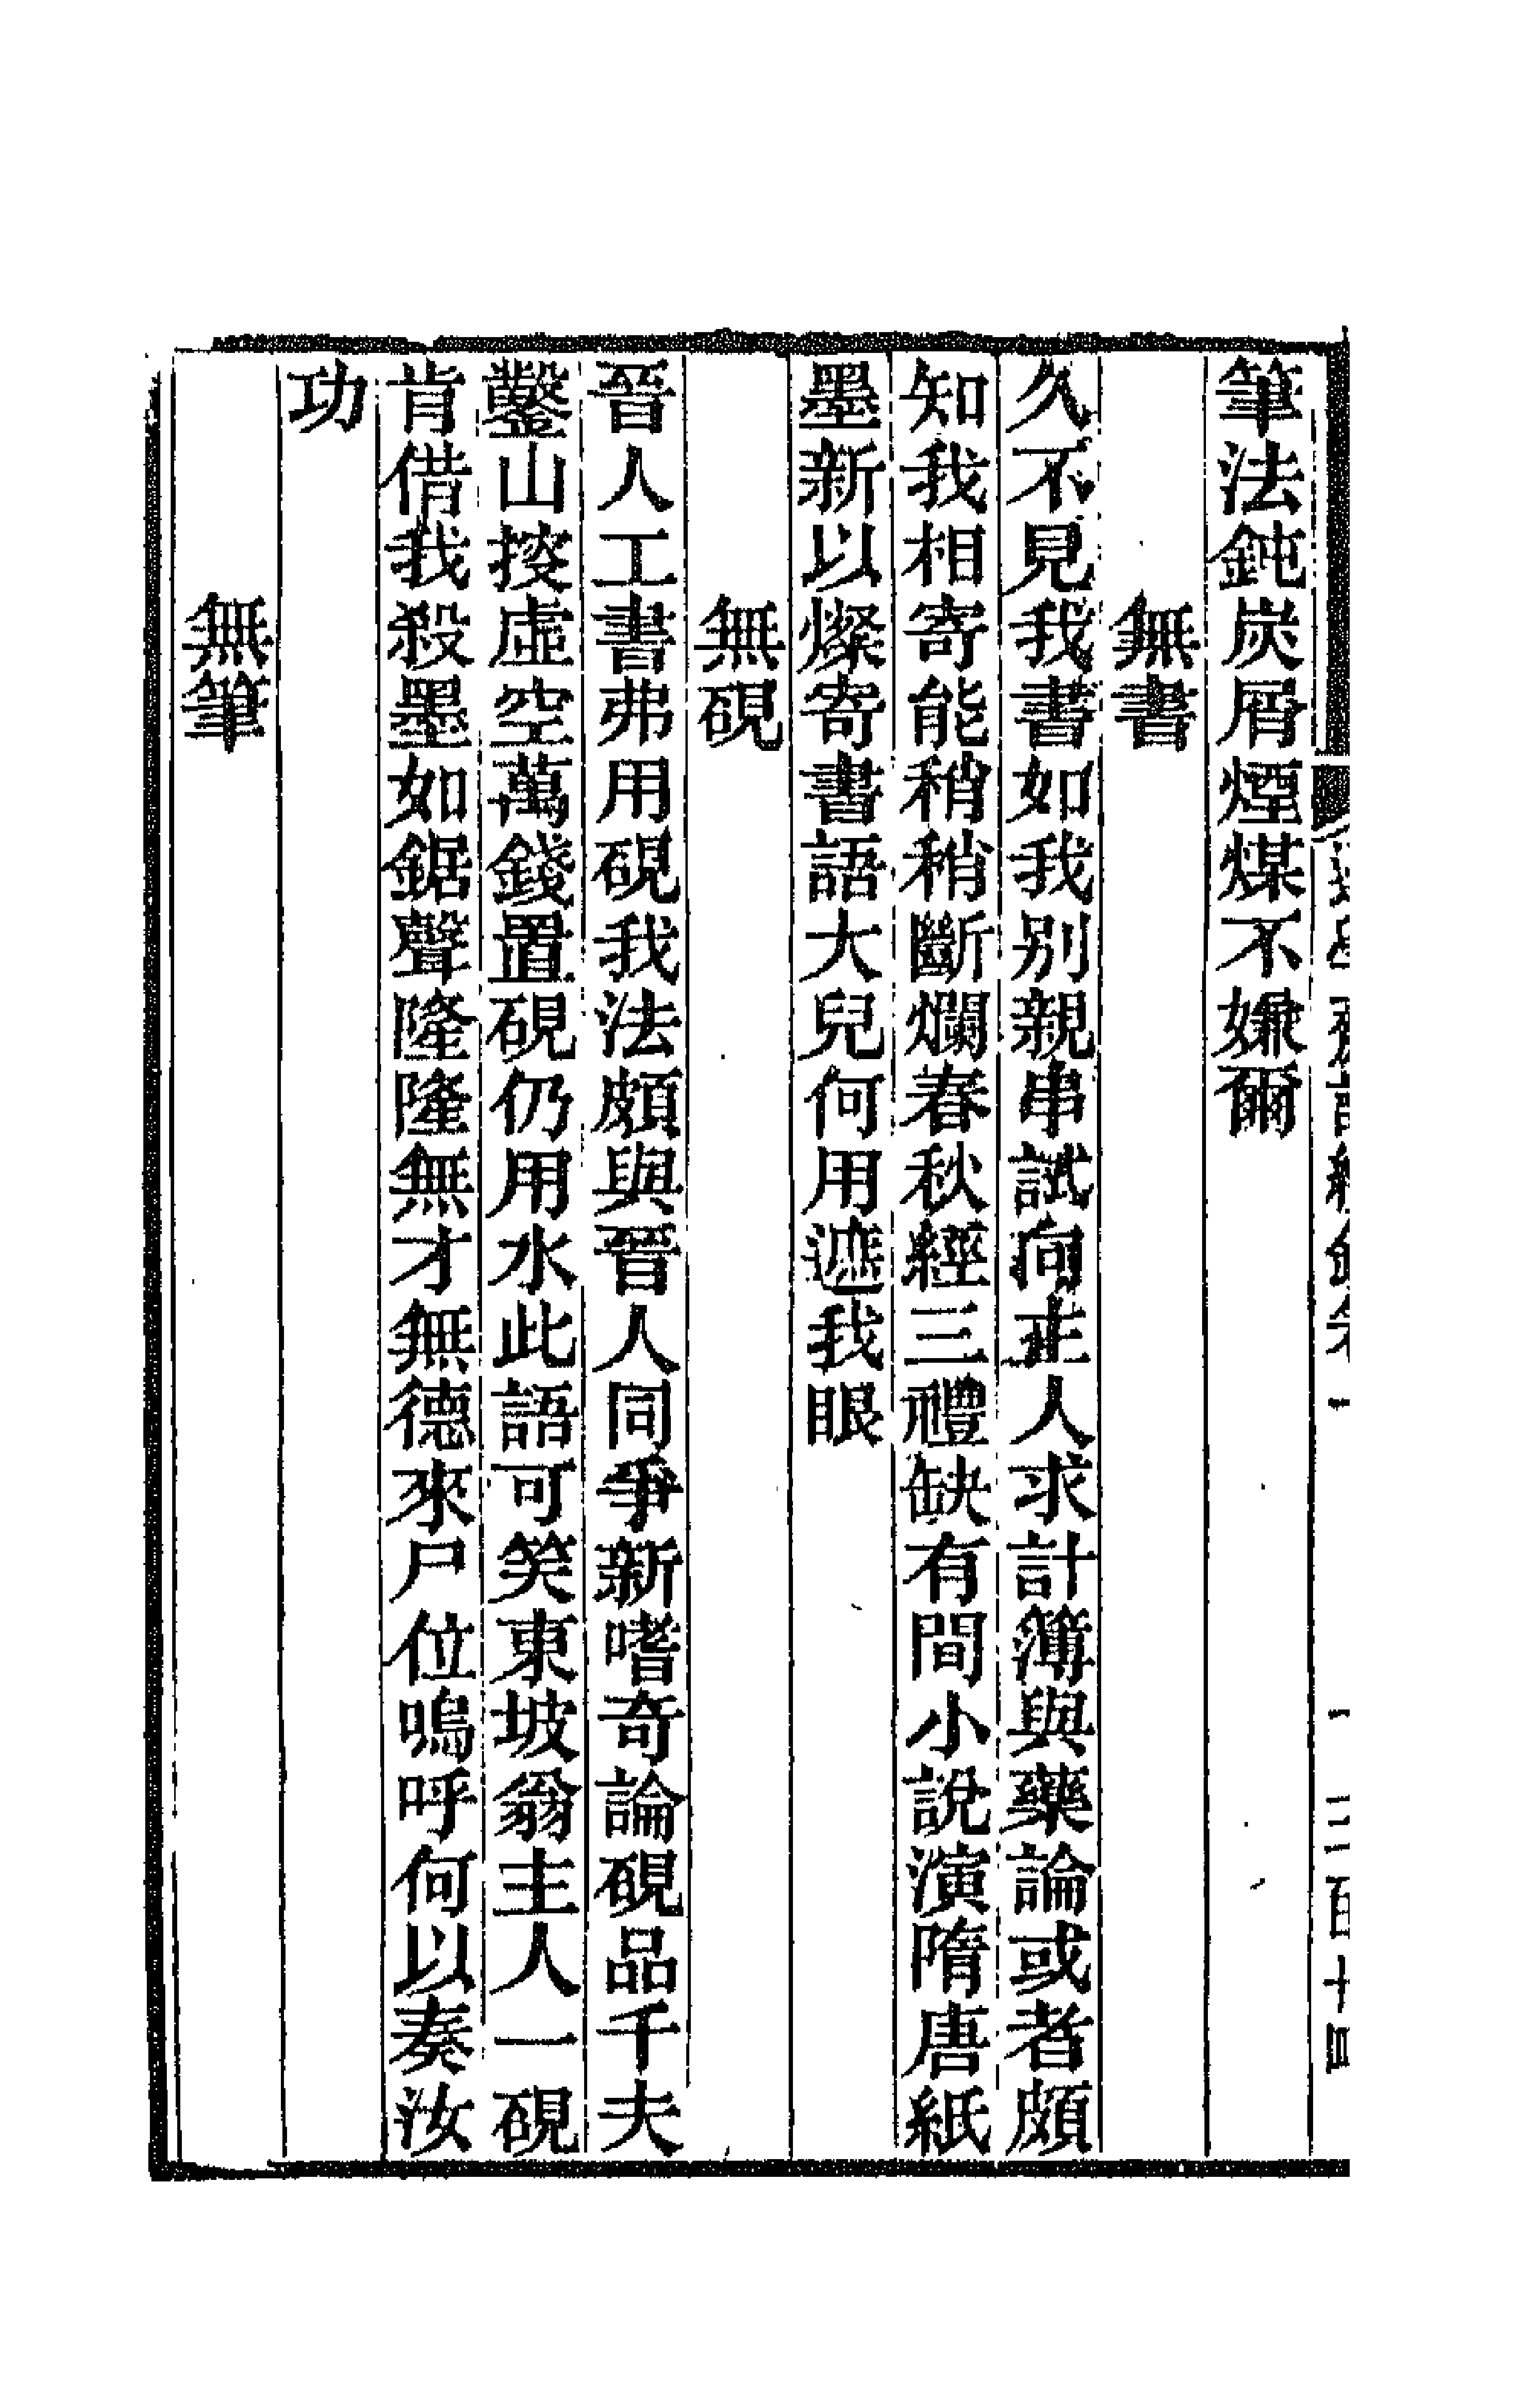 筆法鈍炭屑煙煤不嫌爾
無書
久不見我書如我别親串試向主人求計簿與藥論或者頗
知我相寄能稍稍斷爛春秋經三禮缺有間小說演隋唐紙
墨新以燦寄書語大兒何用遮我眼
無硯
晉人工書弗用硯我法頗與晉人同爭新嗜奇論硯品千夫
鑿山挖虛空萬錢置硯仍用水此語可笑東坡翁主人一硯
肯借我殺墨如鋸聲隆隆無才無德來尸位嗚呼何以奏汝
功
無筆